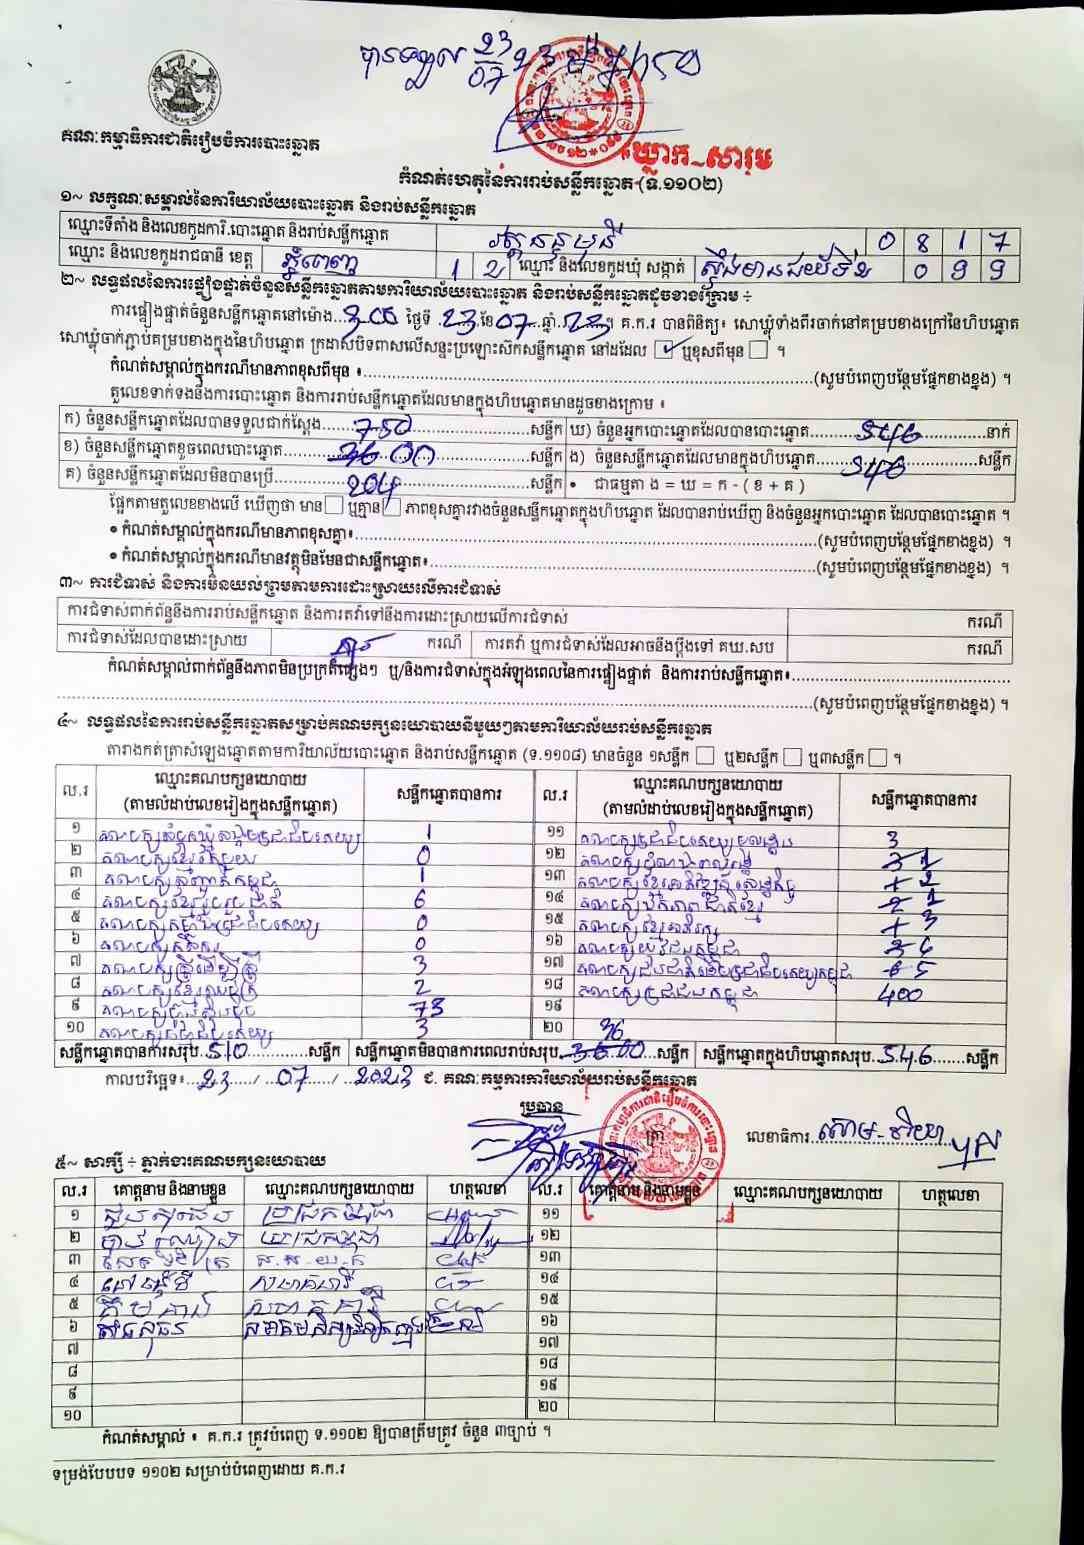 បានទទួល 23/07 23
គណៈកម្មាធិការជាតិរៀបចំការបោះឆ្នោត
ឃ្លោក-សារុម
កំណត់ហេតុនៃការរាប់សន្លឹកឆ្នោត (ទ.១១០២)
១~ លក្ខណៈសម្គាល់នៃការិយាល័យបោះឆ្នោត និងរាប់សន្លឹកឆ្នោត
ឈ្មោះទីតាំង និងលេខកូដការិ.បោះឆ្នោត និងរាប់សន្លឹកឆ្នោត 0 8 1 7
ឈ្មោះ និងលេខកូដរាជធានី ខេត្ត ភ្នំពេញ 1 2 ឈ្មោះ និងលេខកូដឃុំ សង្កាត់ ស្ទឹងមានជ័យទី២ 0 9 9
២~ លទ្ធផលនៃការផ្ទៀងផ្ទាត់ចំនួនសន្លឹកឆ្នោតតាមការិយាល័យបោះឆ្នោត និងរាប់សន្លឹកឆ្នោតដូចខាងក្រោម ÷
ការផ្ទៀងផ្ទាត់ចំនួនសន្លឹកឆ្នោតនៅម៉ោង...3:00 ថ្ងៃទី 23 ខែ 07 ឆ្នាំ 23 ។ គ.ក.រ បានពិនិត្យ៖ សោឃ្លុំទាំងពីរចាក់នៅគម្របខាងក្រៅនៃហិបឆ្នោត
សោឃ្លុំចាក់ភ្ជាប់គម្របខាងក្នុងនៃហិបឆ្នោត ក្រដាសបិទពាសលើសន្ទះប្រឡោះស៊កសន្លឹកឆ្នោត នៅដដែល ☑ ឬខុសពីមុន ☐ ។
កំណត់សម្គាល់ក្នុងករណីមានភាពខុសពីមុន ៖...(សូមបំពេញបន្ថែមផ្នែកខាងខ្នង) ។
តួលេខទាក់ទងនឹងការបោះឆ្នោត និងការរាប់សន្លឹកឆ្នោតដែលមានក្នុងហិបឆ្នោតមានដូចខាងក្រោម ៖
ក) ចំនួនសន្លឹកឆ្នោតដែលបានទទួលជាក់ស្តែង...750...សន្លឹក ឃ) ចំនួនអ្នកបោះឆ្នោតដែលបានបោះឆ្នោត...546...នាក់
ខ) ចំនួនសន្លឹកឆ្នោតខូចពេលបោះឆ្នោត...00...សន្លឹក ង) ចំនួនសន្លឹកឆ្នោតដែលមានក្នុងហិបឆ្នោត...546...សន្លឹក
គ) ចំនួនសន្លឹកឆ្នោតដែលមិនបានប្រើ...204...សន្លឹក • ជាធម្មតា ង = ឃ = ក - ( ខ + គ )
ផ្អែកតាមតួលេខខាងលើ ឃើញថា មាន ☐ ឬគ្មាន ☐ ភាពខុសគ្នារវាងចំនួនសន្លឹកឆ្នោតក្នុងហិបឆ្នោត ដែលបានរាប់ឃើញ និងចំនួនអ្នកបោះឆ្នោត ដែលបានបោះឆ្នោត ។
• កំណត់សម្គាល់ក្នុងករណីមានភាពខុសគ្នា៖...(សូមបំពេញបន្ថែមផ្នែកខាងខ្នង) ។
• កំណត់សម្គាល់ក្នុងករណីមានវត្ថុមិនមែនជាសន្លឹកឆ្នោត៖...(សូមបំពេញបន្ថែមផ្នែកខាងខ្នង) ។
៣~ ការជំទាស់ និងការមិនយល់ព្រមតាមការដោះស្រាយលើការជំទាស់
ការជំទាស់ពាក់ព័ន្ធនឹងការរាប់សន្លឹកឆ្នោត និងការតវ៉ាទៅនឹងការដោះស្រាយលើការជំទាស់ ករណី
ការជំទាស់ដែលបានដោះស្រាយ ករណី ការតវ៉ា ឬការជំទាស់ដែលអាចនឹងប្តឹងទៅ គឃ.សប ករណី
កំណត់សម្គាល់ពាក់ព័ន្ធនឹងភាពមិនប្រក្រតីផ្សេងៗ ឬ/និងការជំទាស់ក្នុងអំឡុងពេលនៃការផ្ទៀងផ្ទាត់ និងការរាប់សន្លឹកឆ្នោត៖...
...(សូមបំពេញបន្ថែមផ្នែកខាងខ្នង) ។
៤~ លទ្ធផលនៃការរាប់សន្លឹកឆ្នោតសម្រាប់គណបក្សនយោបាយនីមួយៗតាមការិយាល័យរាប់សន្លឹកឆ្នោត
តារាងកត់ត្រាសំឡេងឆ្នោតតាមការិយាល័យបោះឆ្នោត និងរាប់សន្លឹកឆ្នោត (ទ.១១០៨) មានចំនួន ១សន្លឹក ☐ ឬ២សន្លឹក ☐ ឬ៣សន្លឹក ☐ ។
ល.រ ឈ្មោះគណបក្សនយោបាយ សន្លឹកឆ្នោតបានការ ល.រ ឈ្មោះគណបក្សនយោបាយ សន្លឹកឆ្នោតបានការ
(តាមលំដាប់លេខរៀងក្នុងសន្លឹកឆ្នោត) (តាមលំដាប់លេខរៀងក្នុងសន្លឹកឆ្នោត)
១ គណបក្សសំបុកឃ្មុំសង្គមប្រជាធិបតេយ្យ 1 ១១ គណបក្សប្រជាធិបតេយ្យមូលដ្ឋាន 3
២ គណបក្សខ្មែរតែមួយ 0 ១២ 1
៣ គណបក្សសញ្ជាតិកម្ពុជា 1 ១៣ គណបក្សខ្មែរអភិវឌ្ឍន៍សេដ្ឋកិច្ច 2
៤ គណបក្សខ្មែររួបរួមជាតិ 6 ១៤ គណបក្សឯកភាពជាតិខ្មែរ 1
៥ គណបក្សកម្លាំងប្រជាធិបតេយ្យ 0 ១៥ គណបក្សខ្មែរអភិរក្ស 3
៦ គណបក្សកសិករ 0 ១៦ គណបក្សយុវជនកម្ពុជា 4
៧ គណបក្សស្ត្រីដើម្បីស្ត្រី 3 ១៧ គណបក្សជនជាតិដើមប្រជាធិបតេយ្យកម្ពុជា 5
៨ គណបក្សខ្មែរឈប់ក្រ 2 ១៨ គណបក្សប្រជាជនកម្ពុជា 400
៩ គណបក្សហ្វ៊ុនស៊ិនប៉ិច 73 ១៩
១០ គណបក្សធម្មាធិបតេយ្យ 3 ២០
សន្លឹកឆ្នោតបានការសរុប 510...សន្លឹក សន្លឹកឆ្នោតមិនបានការពេលរាប់សរុប 36...សន្លឹក សន្លឹកឆ្នោតក្នុងហិបឆ្នោតសរុប 546...សន្លឹក
កាលបរិច្ឆេទ៖...23.../...07.../...2023 ជ. គណៈកម្មការការិយាល័យរាប់សន្លឹកឆ្នោត
ប្រធាន
ត្រា លេខាធិការ
៥~ សាក្សី ÷ ភ្នាក់ងារគណបក្សនយោបាយ
ល.រ គោត្តនាម និងនាមខ្លួន ឈ្មោះគណបក្សនយោបាយ ហត្ថលេខា ល.រ គោត្តនាម និងនាមខ្លួន ឈ្មោះគណបក្សនយោបាយ ហត្ថលេខា
១ ១១
២ ១២
៣ ១៣
៤ ១៤
៥ ១៥
៦ ១៦
៧ ១៧
៨ ១៨
៩ ១៩
១០ ២០
កំណត់សម្គាល់ ៖ គ.ក.រ ត្រូវបំពេញ ទ.១១០២ ឱ្យបានត្រឹមត្រូវ ចំនួន ៣ច្បាប់ ។
ទម្រង់បែបបទ ១១០២ សម្រាប់បំពេញដោយ គ.ក.រ